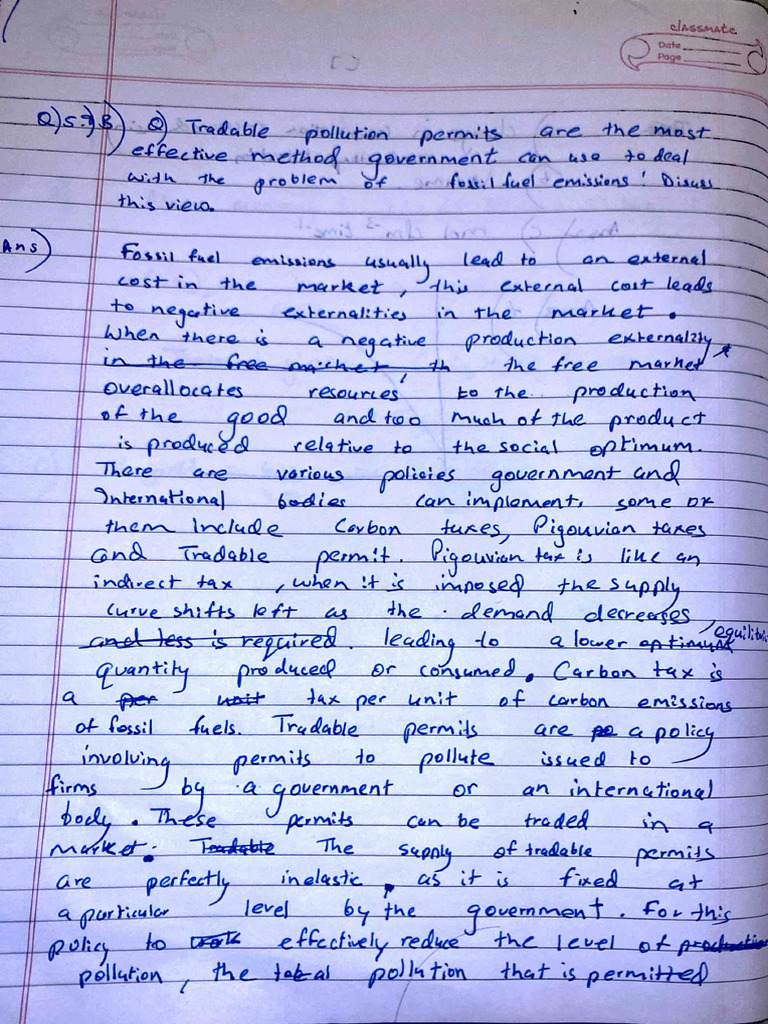 classmate
Date
Page
Q)5.7)B) Q) Tradable pollution permits are the most
effective method government can use to deal
with the problem of fossil fuel emissions! Discuss
this view.
Ans) Fossil fuel emissions usually lead to an external
cost in the market, this external cost leads
to negative externalities in the market.
When there is a negative production externality
in the free market, th the free market
overallocates resources to the production
of the good and too much of the product
is produced relative to the social optimum.
There are various policies government and
International bodies can implement, some of
them Include Carbon taxes, Pigouvian taxes
and Tradable permit. Pigouvian tax is like an
indirect tax, when it is imposed the supply
curve shifts left as the demand decreases,
and less is required. leading to a lower optimum equilib
quantity produced or consumed. Carbon tax is
a per unit tax per unit of carbon emissions
of fossil fuels. Tradable permits are a policy
involving permits to pollute issued to
firms by a government or an international
body. These permits can be traded in a
market. Tradable The supply of tradable permits
are perfectly inelastic, as it is fixed at
a particular level by the government. For this
policy to work effectively reduce the level of production
pollution, the total pollution that is permitted